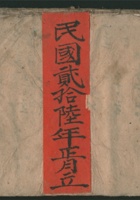 民國貳拾陸年正月立